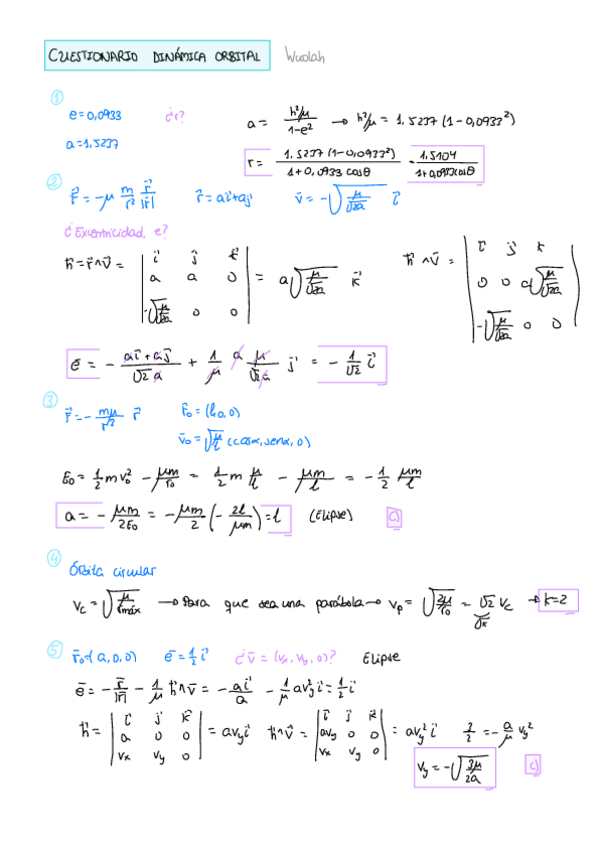 CUESTIONARIO DINÁMICA ORBITAL Wuolah
①
e=0,0933 ¿r? a = (h²/μ)/(1-e²) → h²/μ = 1.5237 (1-0,0933²)
a=1.5237
r = 1.5237 (1-0,0933²)/(1+0,0933 cosθ) = 1.5104/(1+0,0933cosθ)
②
F⃗ = -μ m/r² r⃗/|r⃗| r⃗ = ai⃗+aj⃗ v⃗ = -√(μ/√2a) i⃗
¿Excentricidad, e?
h⃗ = r⃗∧v⃗ = | i⃗ j⃗ k⃗ ; a a 0 ; -√(μ/√2a) 0 0 | = a√(μ/√2a) k⃗ h⃗∧v⃗ = | i⃗ j⃗ k⃗ ; 0 0 a√(μ/√2a) ; -√(μ/√2a) 0 0 |
e⃗ = - (ai⃗+aj⃗)/(√2 a) + 1/μ a μ/(√2a) j⃗ = - 1/√2 i⃗
③
F⃗ = - mμ/r² r⃗ r⃗₀ = (l,0,0)
v⃗₀ = √(μ/l) (cosα, senα, 0)
E₀ = 1/2 m v₀² - μm/r₀ = 1/2 m μ/l - μm/l = - 1/2 μm/l
a = - μm/2E₀ = - μm/2 (- 2l/μm) = l (Elipse)
④
Órbita circular
v_c = √(μ/r_máx) → Para que sea una parábola → v_p = √(2μ/r₀) = √2 v_c → k=2
√k
⑤
r⃗₀=(a,0,0) e⃗ = 1/2 i⃗ ¿v⃗ = (vx, vy, 0)? Elipse
e⃗ = - r⃗/|r⃗| - 1/μ h⃗∧v⃗ = - ai⃗/a - 1/μ avy² i⃗ = 1/2 i⃗
h⃗ = | i⃗ j⃗ k⃗ ; a 0 0 ; vx vy 0 | = avy i⃗ h⃗∧v⃗ = | i⃗ j⃗ k⃗ ; avy 0 0 ; vx vy 0 | = avy² i⃗ 3/2 = - a/μ vy²
vy = -√(3μ/2a) c)